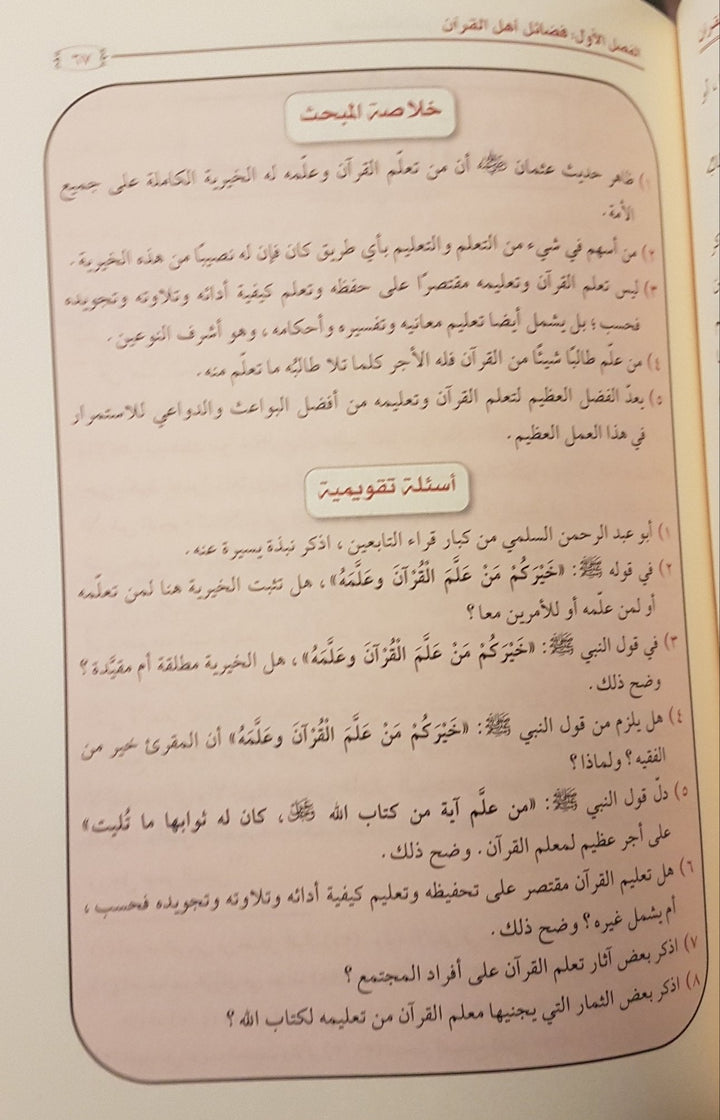 الفصل الأول: فضائل أهل القرآن
٦٧
خلاصة المبحث
١) ظاهر حديث عثمان رضي الله عنه أن من تعلّم القرآن وعلّمه له الخيرية الكاملة على جميع
الأمة.
٢) من أسهم في شيء من التعلم والتعليم بأي طريق كان فإن له نصيبًا من هذه الخيرية.
٣) ليس تعلم القرآن وتعليمه مقتصرًا على حفظه وتعلم كيفية أدائه وتلاوته وتجويده
فحسب؛ بل يشمل أيضا تعليم معانيه وتفسيره وأحكامه، وهو أشرف النوعين.
٤) من علّم طالبًا شيئًا من القرآن فله الأجر كلما تلا طالبُه ما تعلّم منه.
٥) يعدّ الفضل العظيم لتعلم القرآن وتعليمه من أفضل البواعث والدواعي للاستمرار
في هذا العمل العظيم.
أسئلة تقويمية
١) أبو عبد الرحمن السلمي من كبار قراء التابعين، اذكر نبذة يسيرة عنه.
٢) في قوله ﷺ: «خَيْرَكُمْ مَنْ عَلَّمَ الْقُرْآنَ وعَلَّمَهُ»، هل تثبت الخيرية هنا لمن تعلّمه
أو لمن علّمه أو للأمرين معا؟
٣) في قول النبي ﷺ: «خَيْرَكُمْ مَنْ عَلَّمَ الْقُرْآنَ وعَلَّمَهُ»، هل الخيرية مطلقة أم مقيَّدة؟
وضح ذلك.
٤) هل يلزم من قول النبي ﷺ: «خَيْرَكُمْ مَنْ عَلَّمَ الْقُرْآنَ وعَلَّمَهُ» أن المقرئ خير من
الفقيه؟ ولماذا؟
٥) دلّ قول النبي ﷺ: «من علَّم آية من كتاب الله عز وجل، كان له ثوابها ما تُليت»
على أجر عظيم لمعلم القرآن. وضح ذلك.
٦) هل تعليم القرآن مقتصر على تحفيظه وتعليم كيفية أدائه وتلاوته وتجويده فحسب،
أم يشمل غيره؟ وضح ذلك.
٧) اذكر بعض آثار تعلم القرآن على أفراد المجتمع؟
٨) اذكر بعض الثمار التي يجنيها معلم القرآن من تعليمه لكتاب الله؟